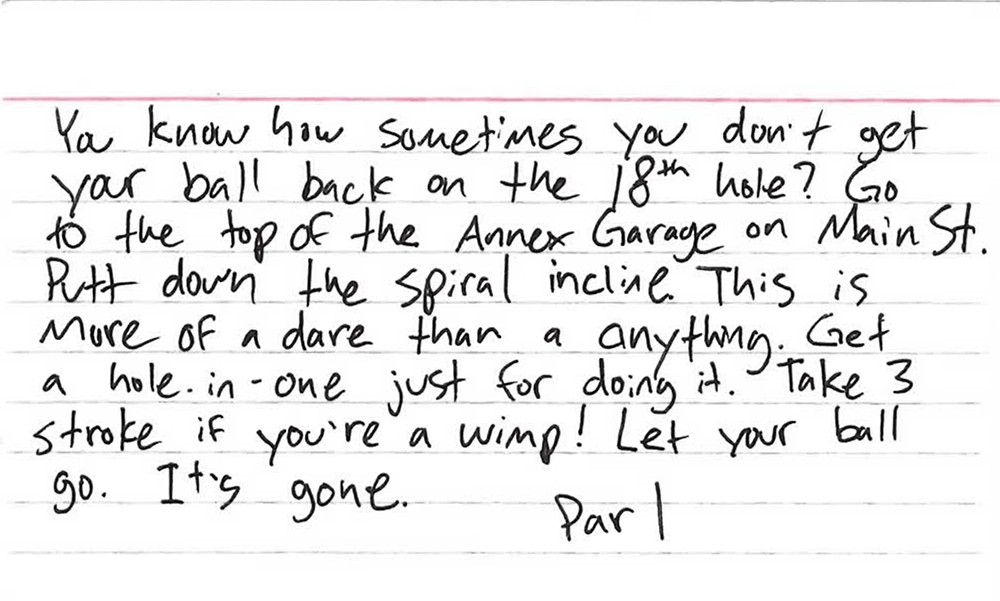 Ya know how sometimes you don't get
your ball back on the 18th hole? Go
to the top of the Annex Garage on Main St.
Putt down the spiral incline. This is
more of a dare than a anything. Get
a hole-in-one just for doing it. Take 3
stroke if you're a wimp! Let your ball
go. It's gone.
Par 1